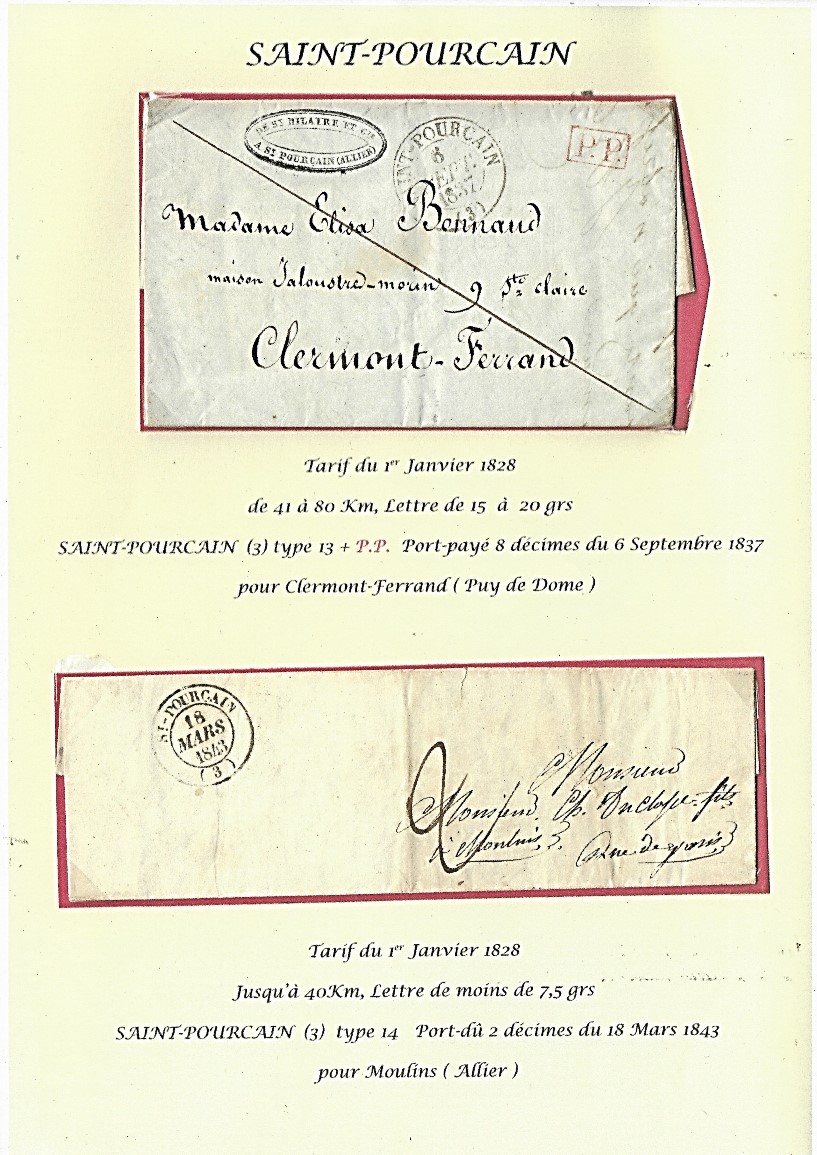 SAINT-POURCAIN
DE St HILAIRE ET Cie
A St POURCAIN (ALLIER)
SAINT-POURCAIN
6
SEPT
1837
(3)
P.P.
Madame Elisa Bennaud
maison Jaloustre-morin 9 Ste claire
Clermont-Ferrand
Tarif du 1er Janvier 1828
de 41 à 80 Km, Lettre de 15 à 20 grs
SAINT-POURCAIN (3) type 13 + P.P. Port-payé 8 décimes du 6 Septembre 1837
pour Clermont-Ferrand ( Puy de Dome )
ST-POURCAIN
18
MARS
1843
(3)
2
Monsieur
Monsieur Ch. fils
à Moulins Rue de paris
Tarif du 1er Janvier 1828
Jusqu'à 40Km, Lettre de moins de 7,5 grs
SAINT-POURCAIN (3) type 14 Port-dû 2 décimes du 18 Mars 1843
pour Moulins ( Allier )